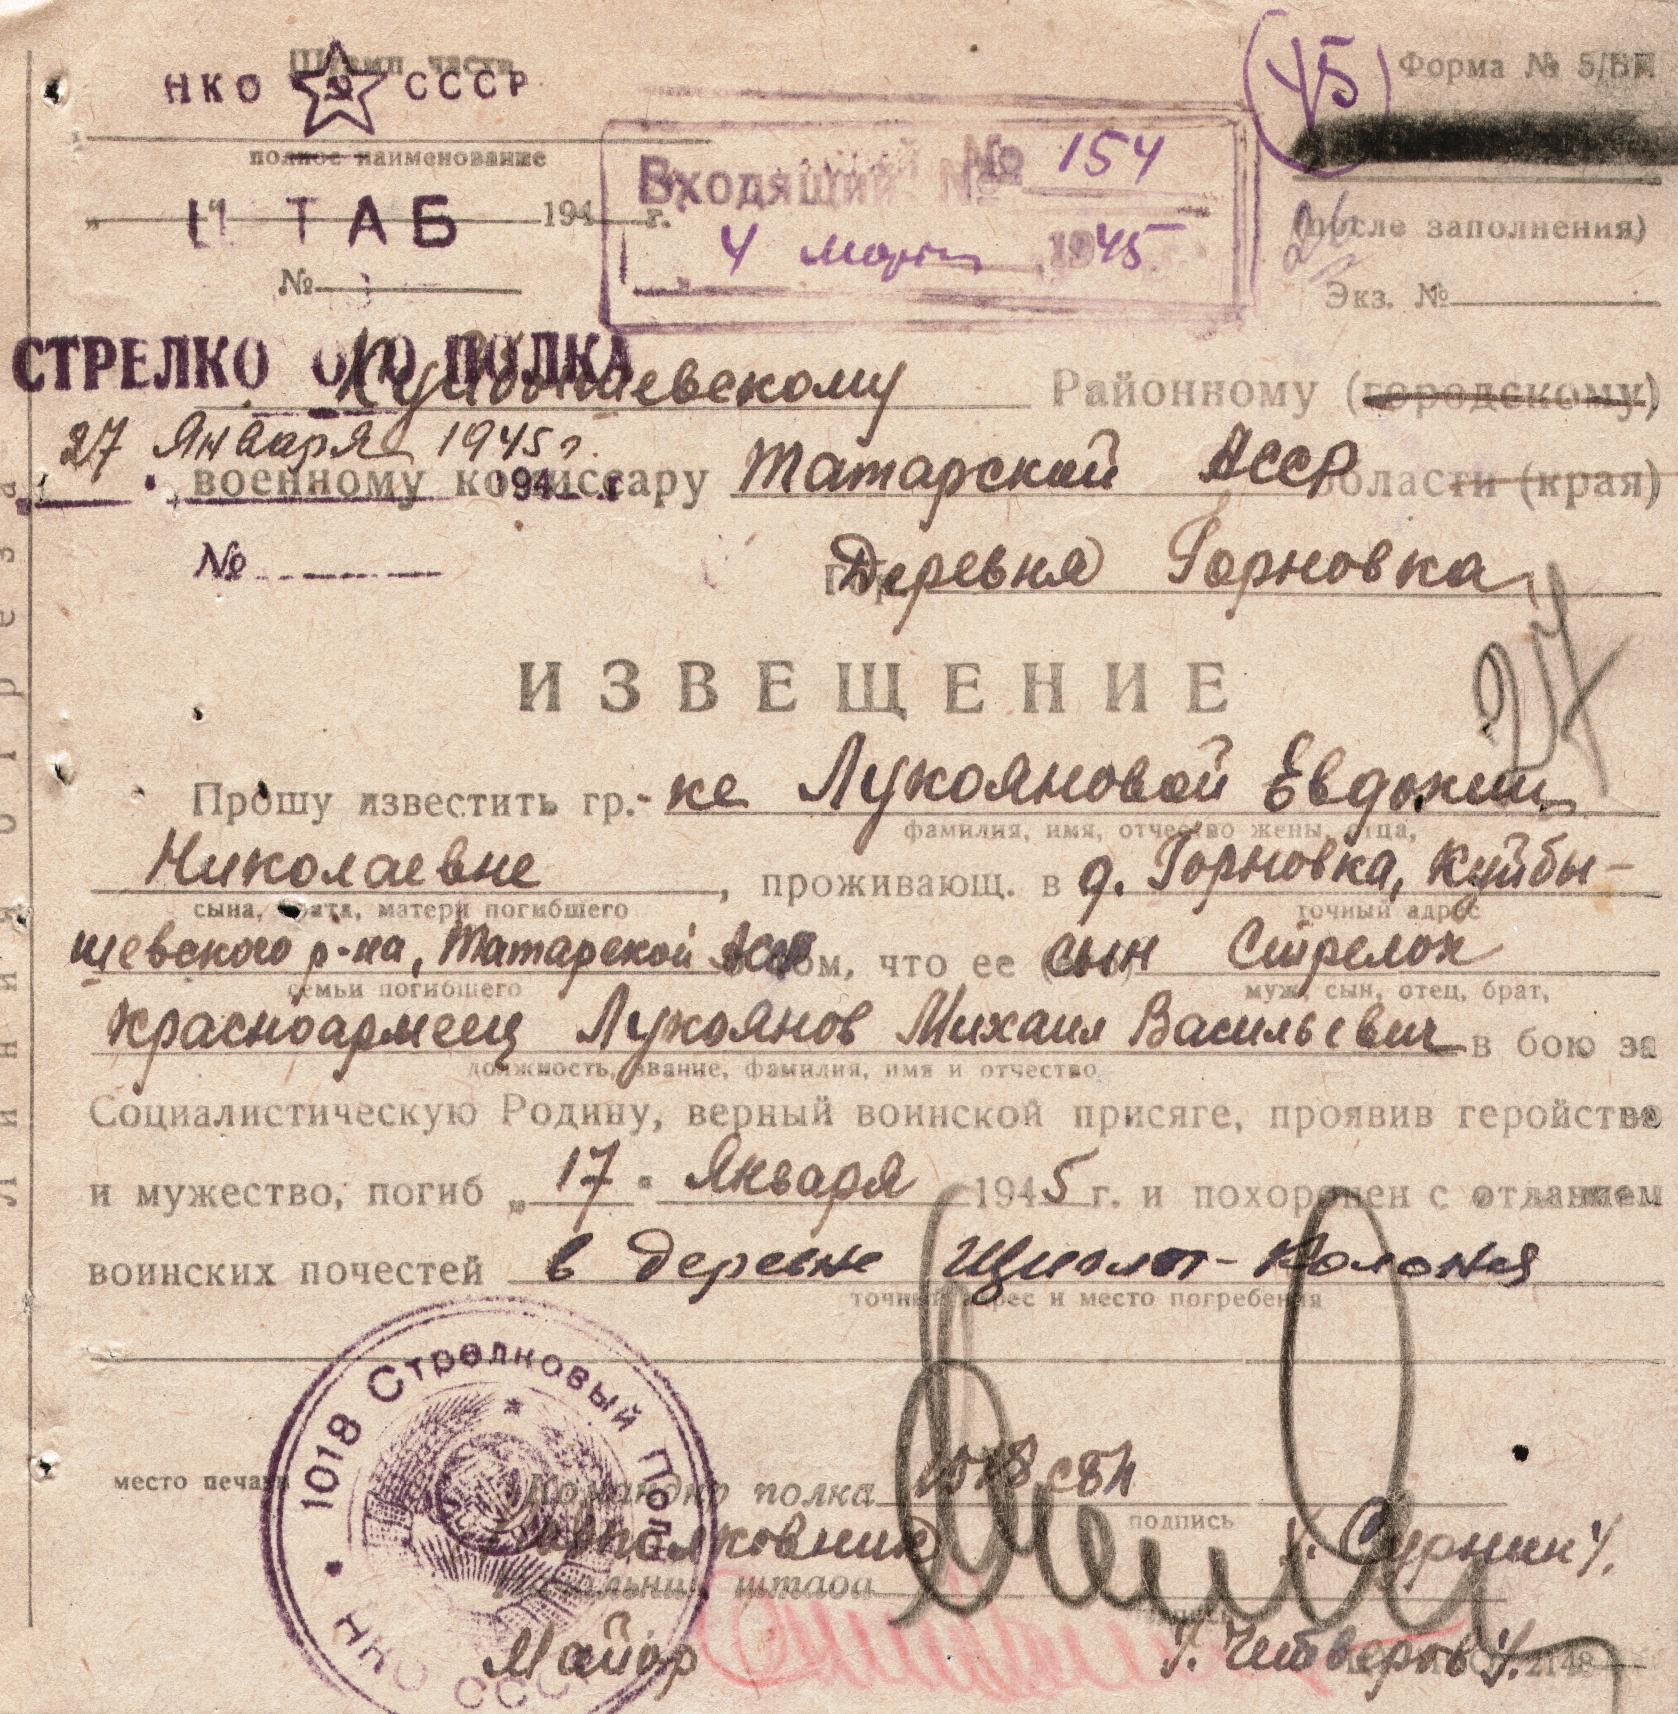 Штамп части
НКО СССР
Форма № 5/БП
45
полное наименование
Входящий № 154
ШТАБ
194 г.
4 марта 1945
(после заполнения)
№
Экз. №
СТРЕЛКО ОГО ПОЛКА
Куйбышевскому Районному (городскому)
27 Января 1945 г.
194 г.
военному комиссару Татарской АССР области (края)
№
гор. Деревня Горновка
ИЗВЕЩЕНИЕ
27
Прошу известить гр.-ке Лукояновой Евдокии
фамилия, имя, отчество жены, отца,
Николаевне, проживающ. в д. Горновка, Куйбы-
сына, брата, матери погибшего точный адрес
шевского р-на, Татарской АССР о том, что ее сын Стрелок
семьи погибшего муж, сын, отец, брат,
Красноармеец Лукоянов Михаил Васильевич в бою за
должность, звание, фамилия, имя и отчество
Социалистическую Родину, верный воинской присяге, проявив геройство
и мужество, погиб „17" Января 1945 г. и похоронен с отданием
воинских почестей в деревне -Колония
точный адрес и место погребения
1018 Стрелковый Полк
НКО СССР
место печати
Командир полка 1018 сп
подпись
Подполковник /. Сурнин /.
Начальник штаба
подпись
Майор /. Четверов /.
2148
Линия отреза